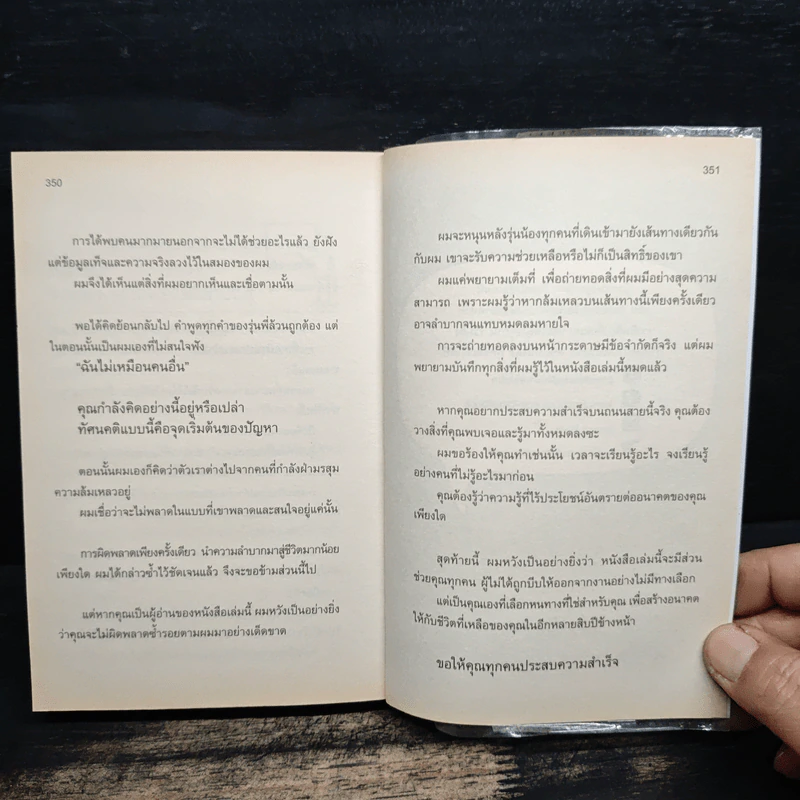 350
การได้พบคนมากมายนอกจากจะไม่ได้ช่วยอะไรแล้ว ยังฝัง
แต่ข้อมูลเท็จและความจริงลวงไว้ในสมองของผม
ผมจึงได้เห็นแต่สิ่งที่ผมอยากเห็นและเชื่อตามนั้น
พอได้คิดย้อนกลับไป คำพูดทุกคำของรุ่นพี่ล้วนถูกต้อง แต่
ในตอนนั้นเป็นผมเองที่ไม่สนใจฟัง
“ฉันไม่เหมือนคนอื่น”
คุณกำลังคิดอย่างนี้อยู่หรือเปล่า
ทัศนคติแบบนี้คือจุดเริ่มต้นของปัญหา
ตอนนั้นผมเองก็คิดว่าตัวเราต่างไปจากคนที่กำลังฝ่ามรสุม
ความล้มเหลวอยู่
ผมเชื่อว่าจะไม่พลาดในแบบที่เขาพลาดและสนใจอยู่แค่นั้น
การผิดพลาดเพียงครั้งเดียว นำความลำบากมาสู่ชีวิตมากน้อย
เพียงใด ผมได้กล่าวซ้ำไว้ชัดเจนแล้ว จึงจะขอข้ามส่วนนี้ไป
แต่หากคุณเป็นผู้อ่านของหนังสือเล่มนี้ ผมหวังเป็นอย่างยิ่ง
ว่าคุณจะไม่ผิดพลาดซ้ำรอยตามผมมาอย่างเด็ดขาด
351
ผมจะหนุนหลังรุ่นน้องทุกคนที่เดินเข้ามายังเส้นทางเดียวกัน
กับผม เขาจะรับความช่วยเหลือหรือไม่ก็เป็นสิทธิ์ของเขา
ผมแค่พยายามเต็มที่ เพื่อถ่ายทอดสิ่งที่ผมมีอย่างสุดความ
สามารถ เพราะผมรู้ว่าหากล้มเหลวบนเส้นทางนี้เพียงครั้งเดียว
อาจลำบากจนแทบหมดลมหายใจ
การจะถ่ายทอดลงบนหน้ากระดาษมีข้อจำกัดก็จริง แต่ผม
พยายามบันทึกทุกสิ่งที่ผมรู้ไว้ในหนังสือเล่มนี้หมดแล้ว
หากคุณอยากประสบความสำเร็จบนถนนสายนี้จริง คุณต้อง
วางสิ่งที่คุณพบเจอและรู้มาทั้งหมดลงซะ
ผมขอร้องให้คุณทำเช่นนั้น เวลาจะเรียนรู้อะไร จงเรียนรู้
อย่างคนที่ไม่รู้อะไรมาก่อน
คุณต้องรู้ว่าความรู้ที่ไร้ประโยชน์อันตรายต่ออนาคตของคุณ
เพียงใด
สุดท้ายนี้ ผมหวังเป็นอย่างยิ่งว่า หนังสือเล่มนี้จะมีส่วน
ช่วยคุณทุกคน ผู้ไม่ได้ถูกบีบให้ออกจากงานอย่างไม่มีทางเลือก
แต่เป็นคุณเองที่เลือกหนทางที่ใช่สำหรับคุณ เพื่อสร้างอนาคต
ให้กับชีวิตที่เหลือของคุณในอีกหลายสิบปีข้างหน้า
ขอให้คุณทุกคนประสบความสำเร็จ